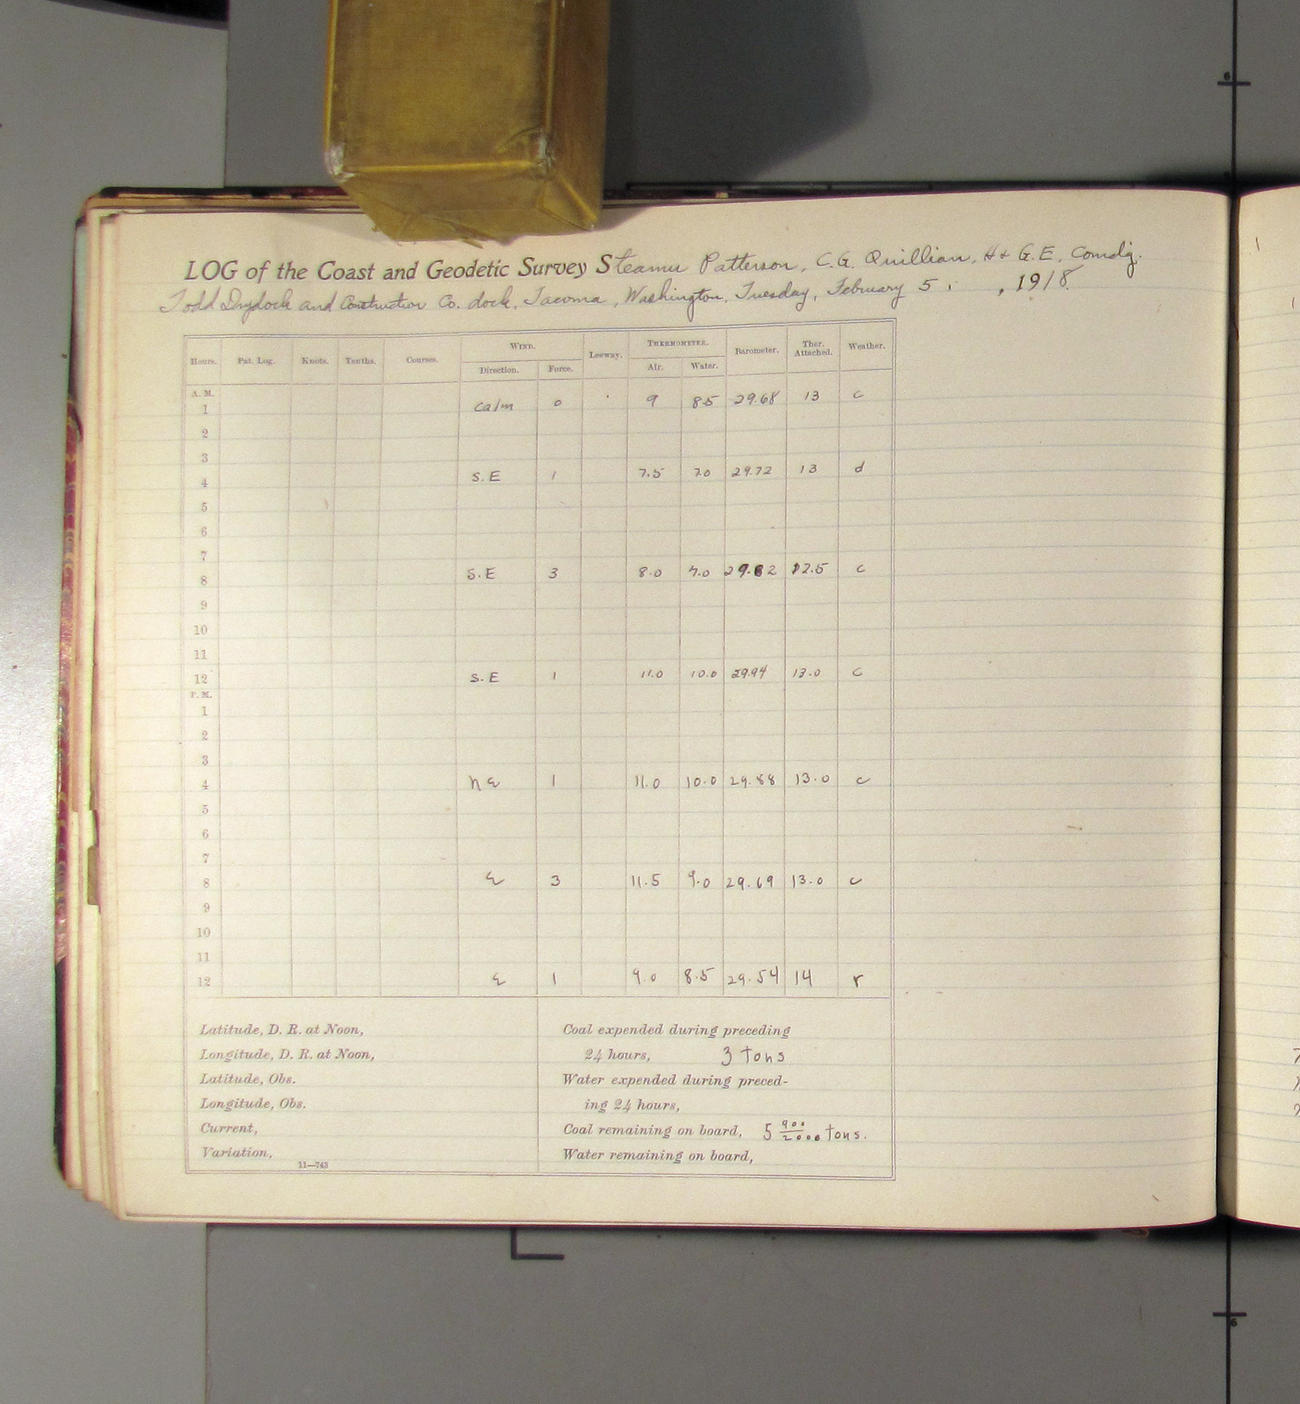 LOG of the Coast and Geodetic Survey Steamer Patterson, C.G. Quillian, H & G.E, Comdg.
Todd Drydock and Construction Co. dock, Tacoma, Washington, Tuesday, February 5, 1918
Hours. Pat. Log. Knots. Tenths. Courses. WIND. Leeway. THERMOMETER. Barometer. Ther. Attached. Weather.
Direction. Force. Air. Water.
A. M.
1 calm 0 9 8.5 29.68 13 c
2
3
4 S.E 1 7.5 7.0 29.72 13 d
5
6
7
8 S.E 3 8.0 7.0 29.82 12.5 c
9
10
11
12 S.E 1 11.0 10.0 29.94 13.0 c
P. M.
1
2
3
4 NE 1 11.0 10.0 29.88 13.0 c
5
6
7
8 E 3 11.5 9.0 29.69 13.0 c
9
10
11
12 E 1 9.0 8.5 29.54 14 r
Latitude, D. R. at Noon,
Longitude, D. R. at Noon,
Latitude, Obs.
Longitude, Obs.
Current,
Variation,
11—743
Coal expended during preceding
24 hours, 3 tons
Water expended during preced-
ing 24 hours,
Coal remaining on board, 5 900/2000 tons.
Water remaining on board,
6
6